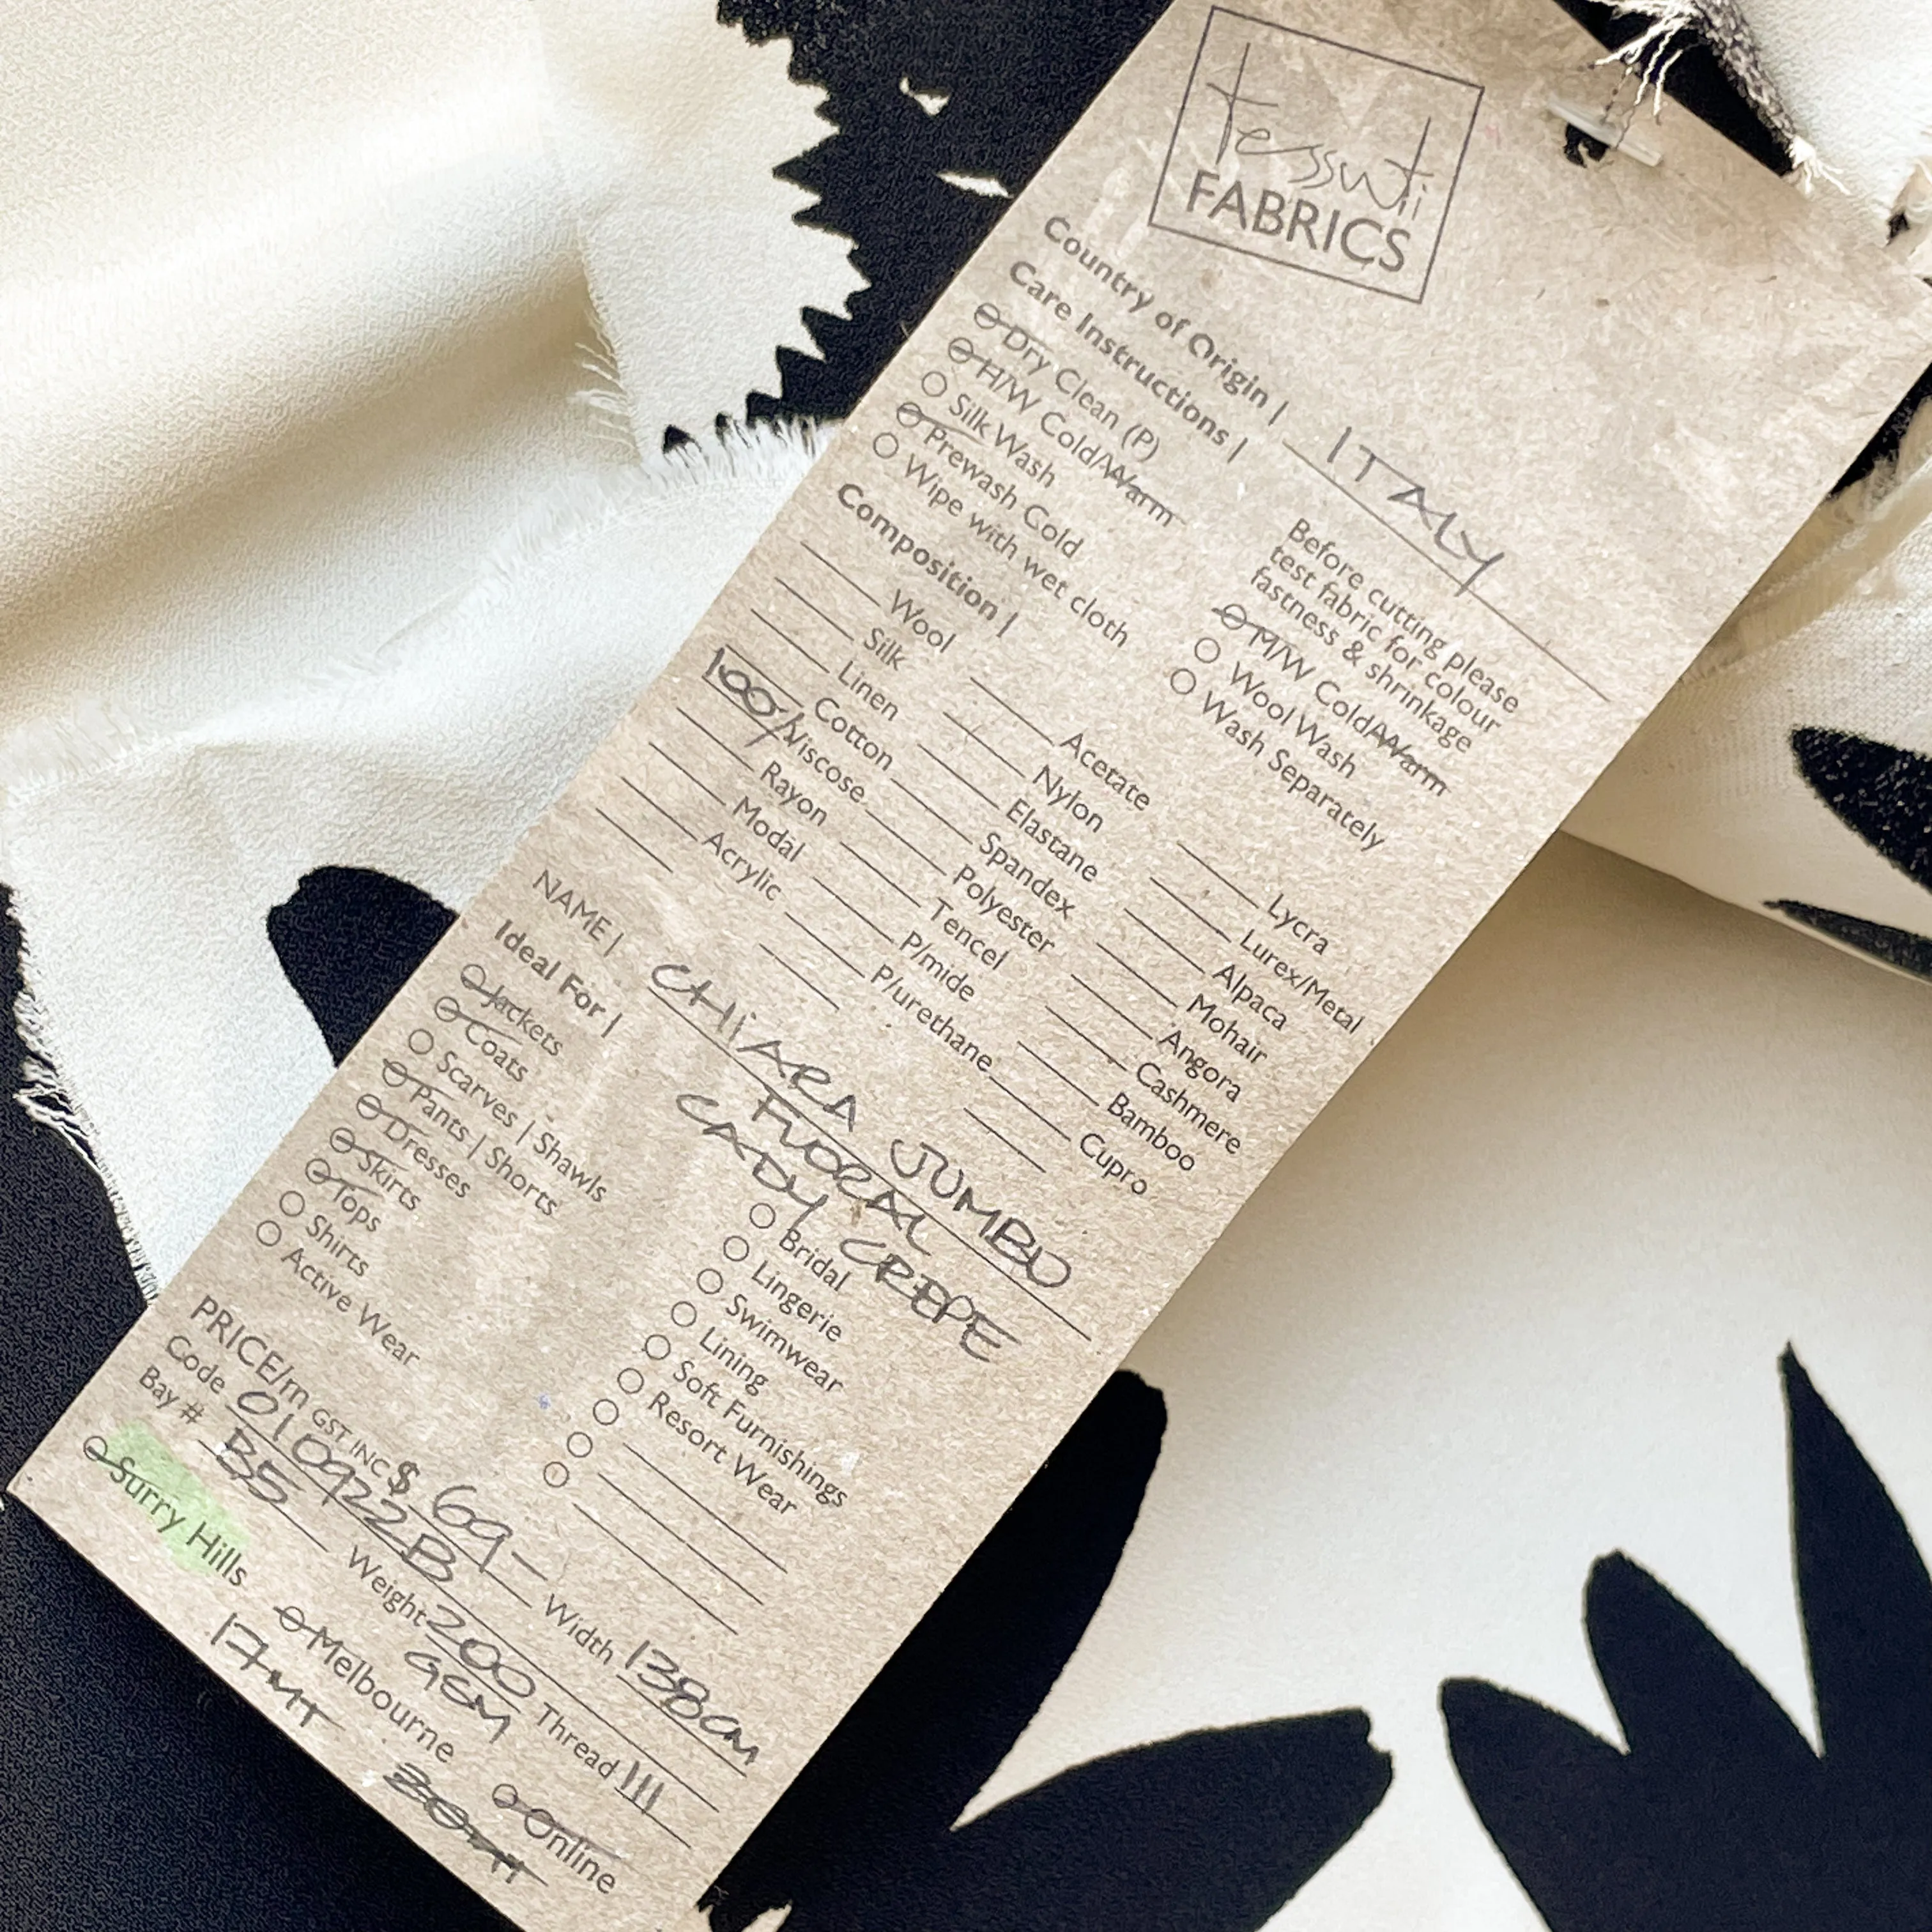 tessuti
FABRICS
Country of Origin | ITALY
Care Instructions |
Before cutting please
test fabric for colour
fastness & shrinkage
Dry Clean (P)
H/W Cold/Warm
Silk Wash
Prewash Cold
Wipe with wet cloth
M/W Cold/Warm
Wool Wash
Wash Separately
Composition |
Wool
Silk
Linen
Cotton
100% Viscose
Rayon
Modal
Acrylic
Acetate
Nylon
Elastane
Spandex
Polyester
Tencel
P/mide
P/urethane
Lycra
Lurex/Metal
Alpaca
Mohair
Angora
Cashmere
Bamboo
Cupro
NAME | CHIARA JUMBO
FLORAL
CADY CREPE
Ideal For |
Jackets
Coats
Scarves | Shawls
Pants | Shorts
Dresses
Skirts
Tops
Shirts
Active Wear
Bridal
Lingerie
Swimwear
Lining
Soft Furnishings
Resort Wear
PRICE/m GST INC $ 69- Width 138cm
Code 010922B
Bay # B5 Weight 200 Thread III
GSM
Surry Hills Melbourne Online
17MT